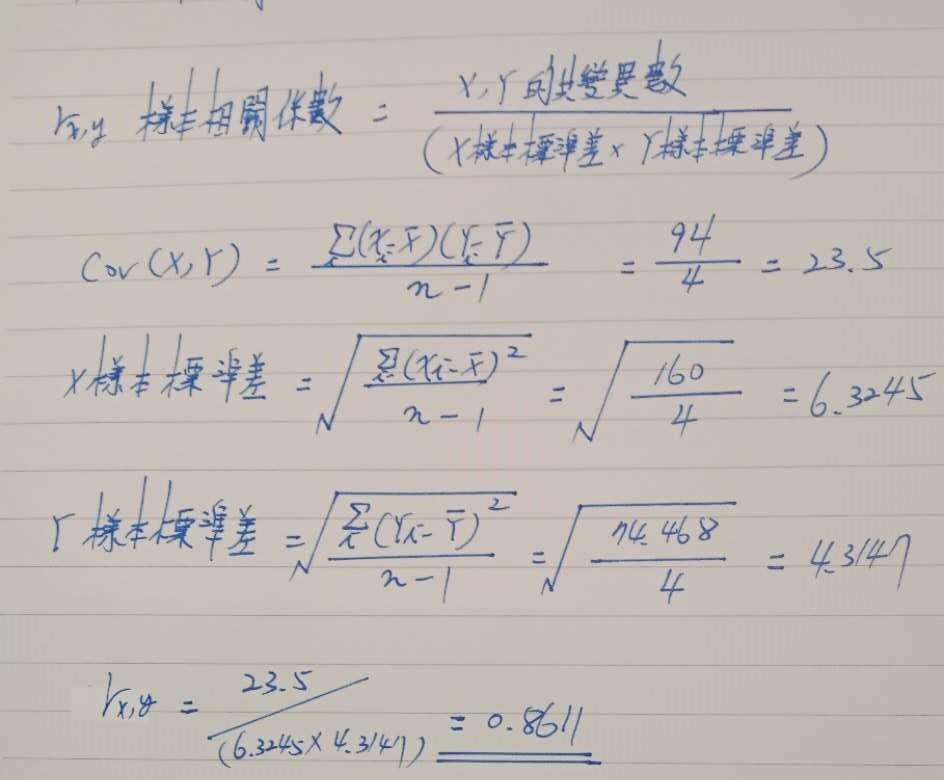 r x,y 樣本相關係數 = X,Y的共變異數 / (X樣本標準差 × Y樣本標準差)
Cov(X,Y) = Σi(Xi-X̄)(Yi-Ȳ) / n-1 = 94/4 = 23.5
X樣本標準差 = √(Σi(Xi-X̄)² / n-1) = √(160/4) = 6.3245
Y樣本標準差 = √(Σi(Yi-Ȳ)² / n-1) = √(74.468/4) = 4.3147
r x,y = 23.5 / (6.3245×4.3147) = 0.8611